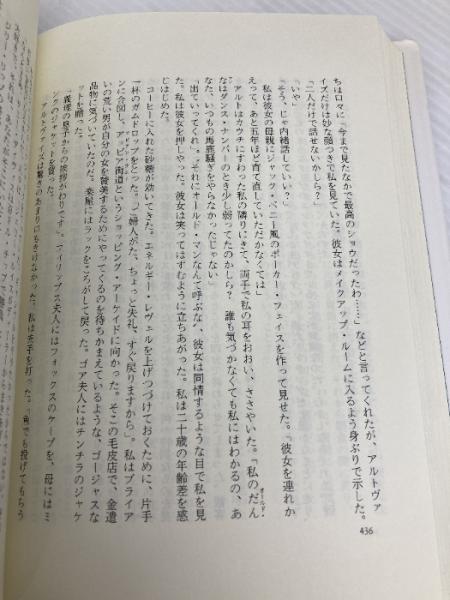 ちは口々に「今まで見たなかで最高のショウだったわ……」などと言ってくれたが、アルトヴァ
イズだけは妙な顔つきで私を見ていた。彼女はメイクアップ・ルームに入るよう身ぶりで示した。
「二人だけで話せないかしら？」
「いや」
「そう、じゃ内緒話していい？」
私は彼女の母親にジャック・ベニー風のポーカー・フェイスを作って見せた。「彼女を連れか
えって、あと五年ほど育て直していただかなくては」
アルトはカウチにすわった私の隣りにきて、両手で私の耳をおおい、ささやいた。「私のだん
なは
オールド・
ダンス・ナンバーのとき少し弱ってたのかしら？　誰も気づかなくても私にはわかるの、あ
なた、いつもの馬鹿騒ぎをやらなかったじゃない」
「出ていってくれ。それにオールド・マンなんて呼ぶな」彼女は同情するような目で私を見
た。私は彼女を押しやった。彼女は笑ってはずむように立ちあがった。私は二十歳の年齢差を感
じはじめた。
コーヒーに入れた砂糖が効いてきた。エネルギー・レヴェルを上げつづけておくために、片手
一杯のガムドロップをとった。「ご婦人がた、ちょっと失礼、すぐ戻りますから」。私はブライア
ンに合図し、アッピア街道というショッピング・アーケイドに向かった。そこの毛皮店で、金遣
いの荒い男が自分の女を賛美するためにやってくるのを待ちかまえているような、ゴージャスな
品物に気づいていたのだ。楽屋にはラックをころがして戻った。ゴア夫人にはチンチラのジャケ
ットを贈った。
「義理の息子からの挨拶がわりです」フィリップス夫人にはフォックスのケープを、母にはミ
ンクのジャケットを贈った。
アルトヴァイズは驚きのあまり口もきけなかった。私は両手を打った。「魚でも投げてもらう
436